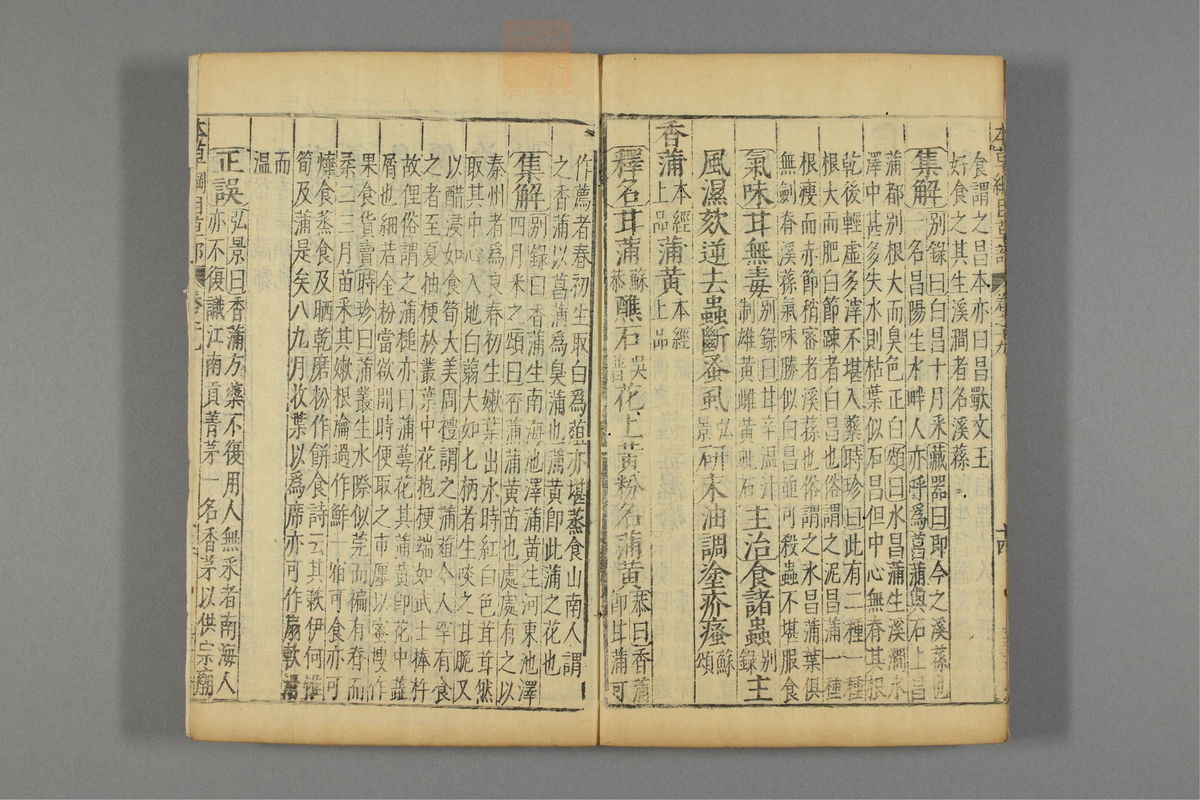 本草綱目草部 卷十九 十四
食謂之昌本亦曰昌歜文王
好食之其生溪澗者名溪蓀
集解 別錄曰白昌十月采藏器曰即今之溪蓀也
一名昌陽生水畔人亦呼為菖蒲與石上昌
蒲都別根大而臭色正白頌曰水昌蒲生溪澗水
澤中甚多失水則枯葉似石昌但中心無脊其根
乾後輕虛多滓不堪入藥時珍曰此有二種一種
根大而肥白節踈者白昌也俗謂之泥昌蒲一種
根瘦而赤節稍密者溪蓀也俗謂之水昌蒲葉俱
無劍脊溪蓀氣味勝似白昌並可殺蟲不堪服食
氣味甘無毒別錄曰甘辛溫汁制雄黃雌黃砒石主治食諸蟲別錄主
風濕欬逆去蟲斷蚤虱弘景研末油調塗疥瘙蘇頌
香蒲本經上品蒲黃本經上品
釋名甘蒲蘇恭醮石吳普花上黃粉名蒲黃恭曰香蒲即甘蒲可
作薦者春初生取白為葅亦堪蒸食山南人謂
之香蒲以菖蒲為臭蒲也蒲黃即此蒲之花也
集解 別錄曰香蒲生南海池澤蒲黃生河東池澤
四月采之頌曰香蒲蒲黃苗也處處有之以
秦州者為良春初生嫩葉出水時紅白色茸茸然
取其中心入地白蒻大如匕柄者生啖之甘脆又
以醋浸如食筍大美周禮謂之蒲葅今人罕有食
之者至夏抽梗於叢葉中花抱梗端如武士捧杵
故俚俗謂之蒲槌亦曰蒲蕚花其蒲黃即花中蘂
屑也細若金粉當欲開時便取之市廛以蜜搜作
果食貨賣時珍曰蒲叢生水際似莞而褊有脊而
柔二三月苗采其嫩根瀹過作鮓一宿可食亦可
煠食蒸食及晒乾磨粉作餅食詩云其蔌伊何惟
筍及蒲是矣八九月收葉以為席亦可作扇軟滑
而
溫
正誤 弘景曰香蒲方藥不復用人無采者南海人
亦不復識江南貢菁茅一名香茅以供宗廟
本草綱目草部 卷十九